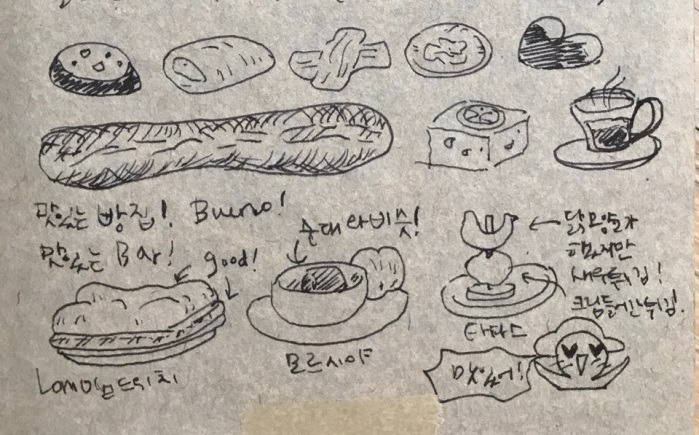 맛있는 빵집! Bueno!
맛있는 Bar!
good!
순대와 비슷!
닭모양을
했지만
새우튀김!
크림들어간 튀김.
Lomo샌드위치
모르시야
타파스
맛있어!